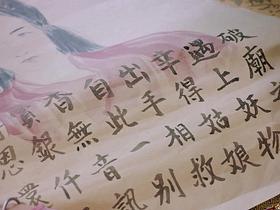 破廟
遇上妖物
幸得姑娘
出手相救
自此一別
杳無音訊
銀仟
還